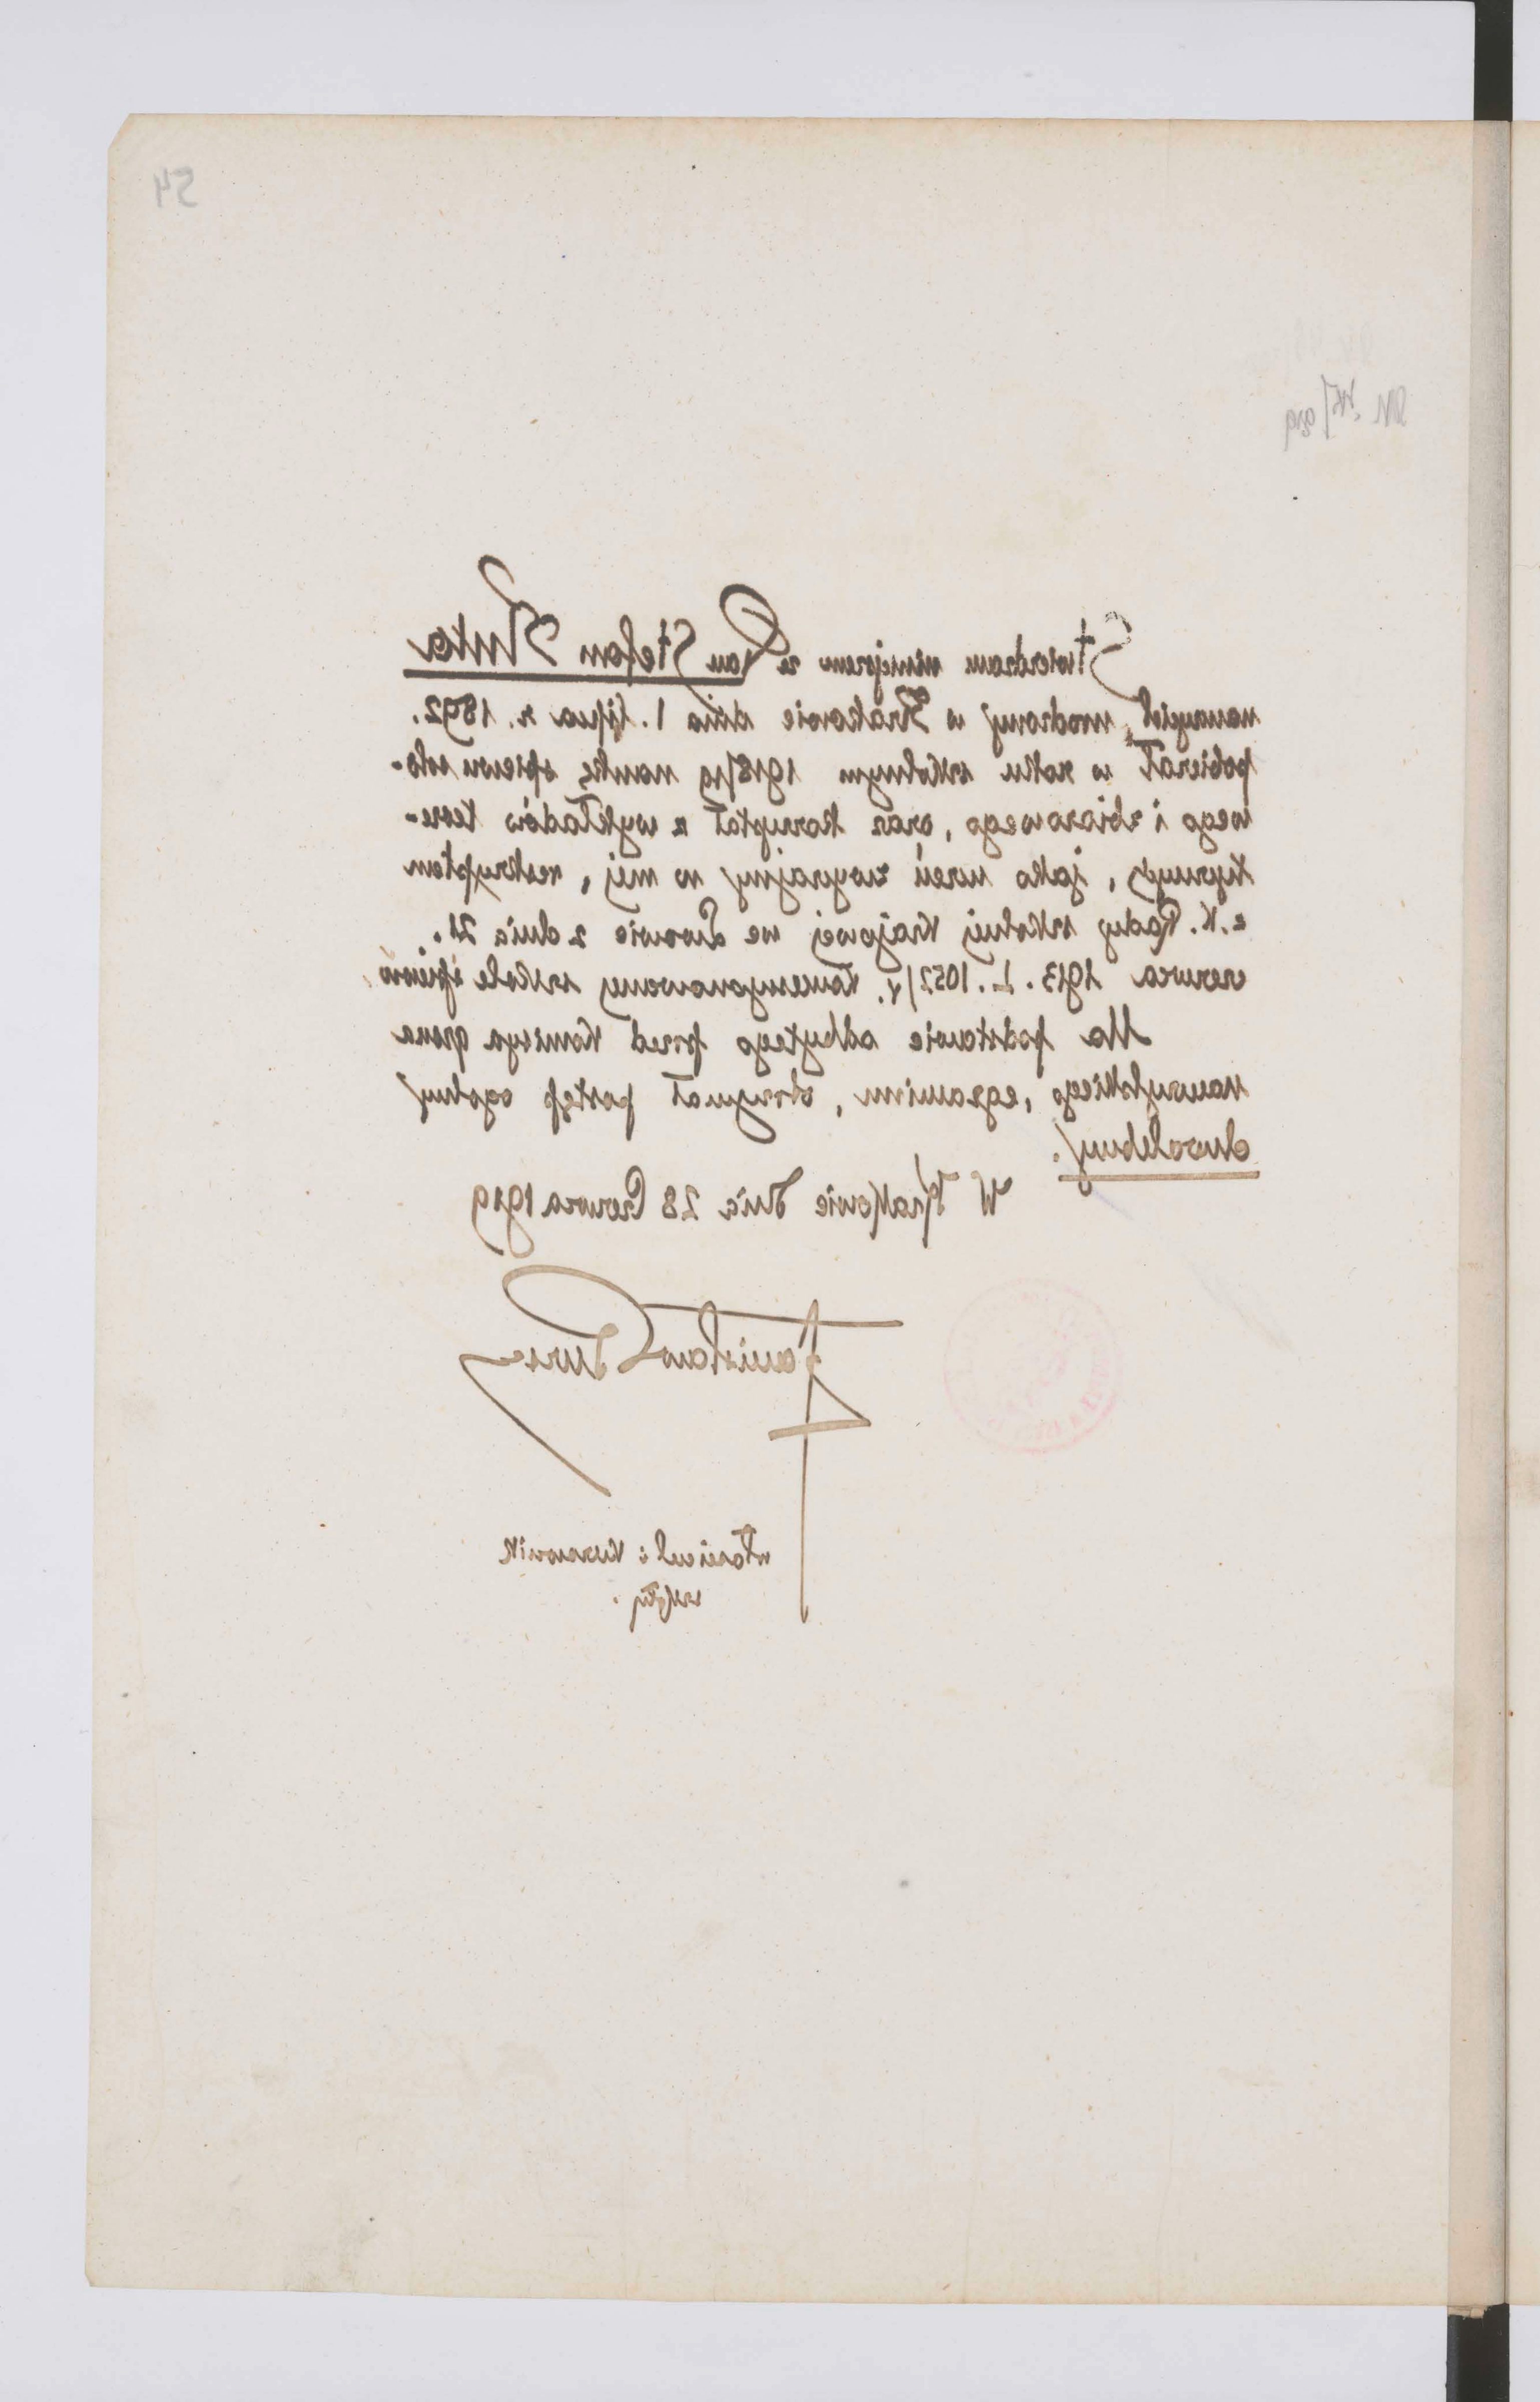 54
Stwierdzam niniejszem że Pan Stefan Znka
nauczyciel, urodzony w Krakowie dnia 1. lipca r. 1892.
pobierał w roku szkolnym 1918/19 naukę spiewu solo-
wego i zbiorowego, oraz korzystał z wykładów teore-
tycznych, jako uczeń zwyczajny w mej, reskryptem
c. K. Rady szkolnej Krajowej we Lwowie z dnia 21.
czerwca 1913. L. 1052/V. koncesyonowanej szkole śpiewu
Na podstawie odbytego przed Komisya grona
nauczylskiego, egzaminu, otrzymał postęp ogolny
chwalebny.
W Krakowie dnia 28 Czerwca 1919
Stanisław Bursa
właściciel i kierownik
szkoły.